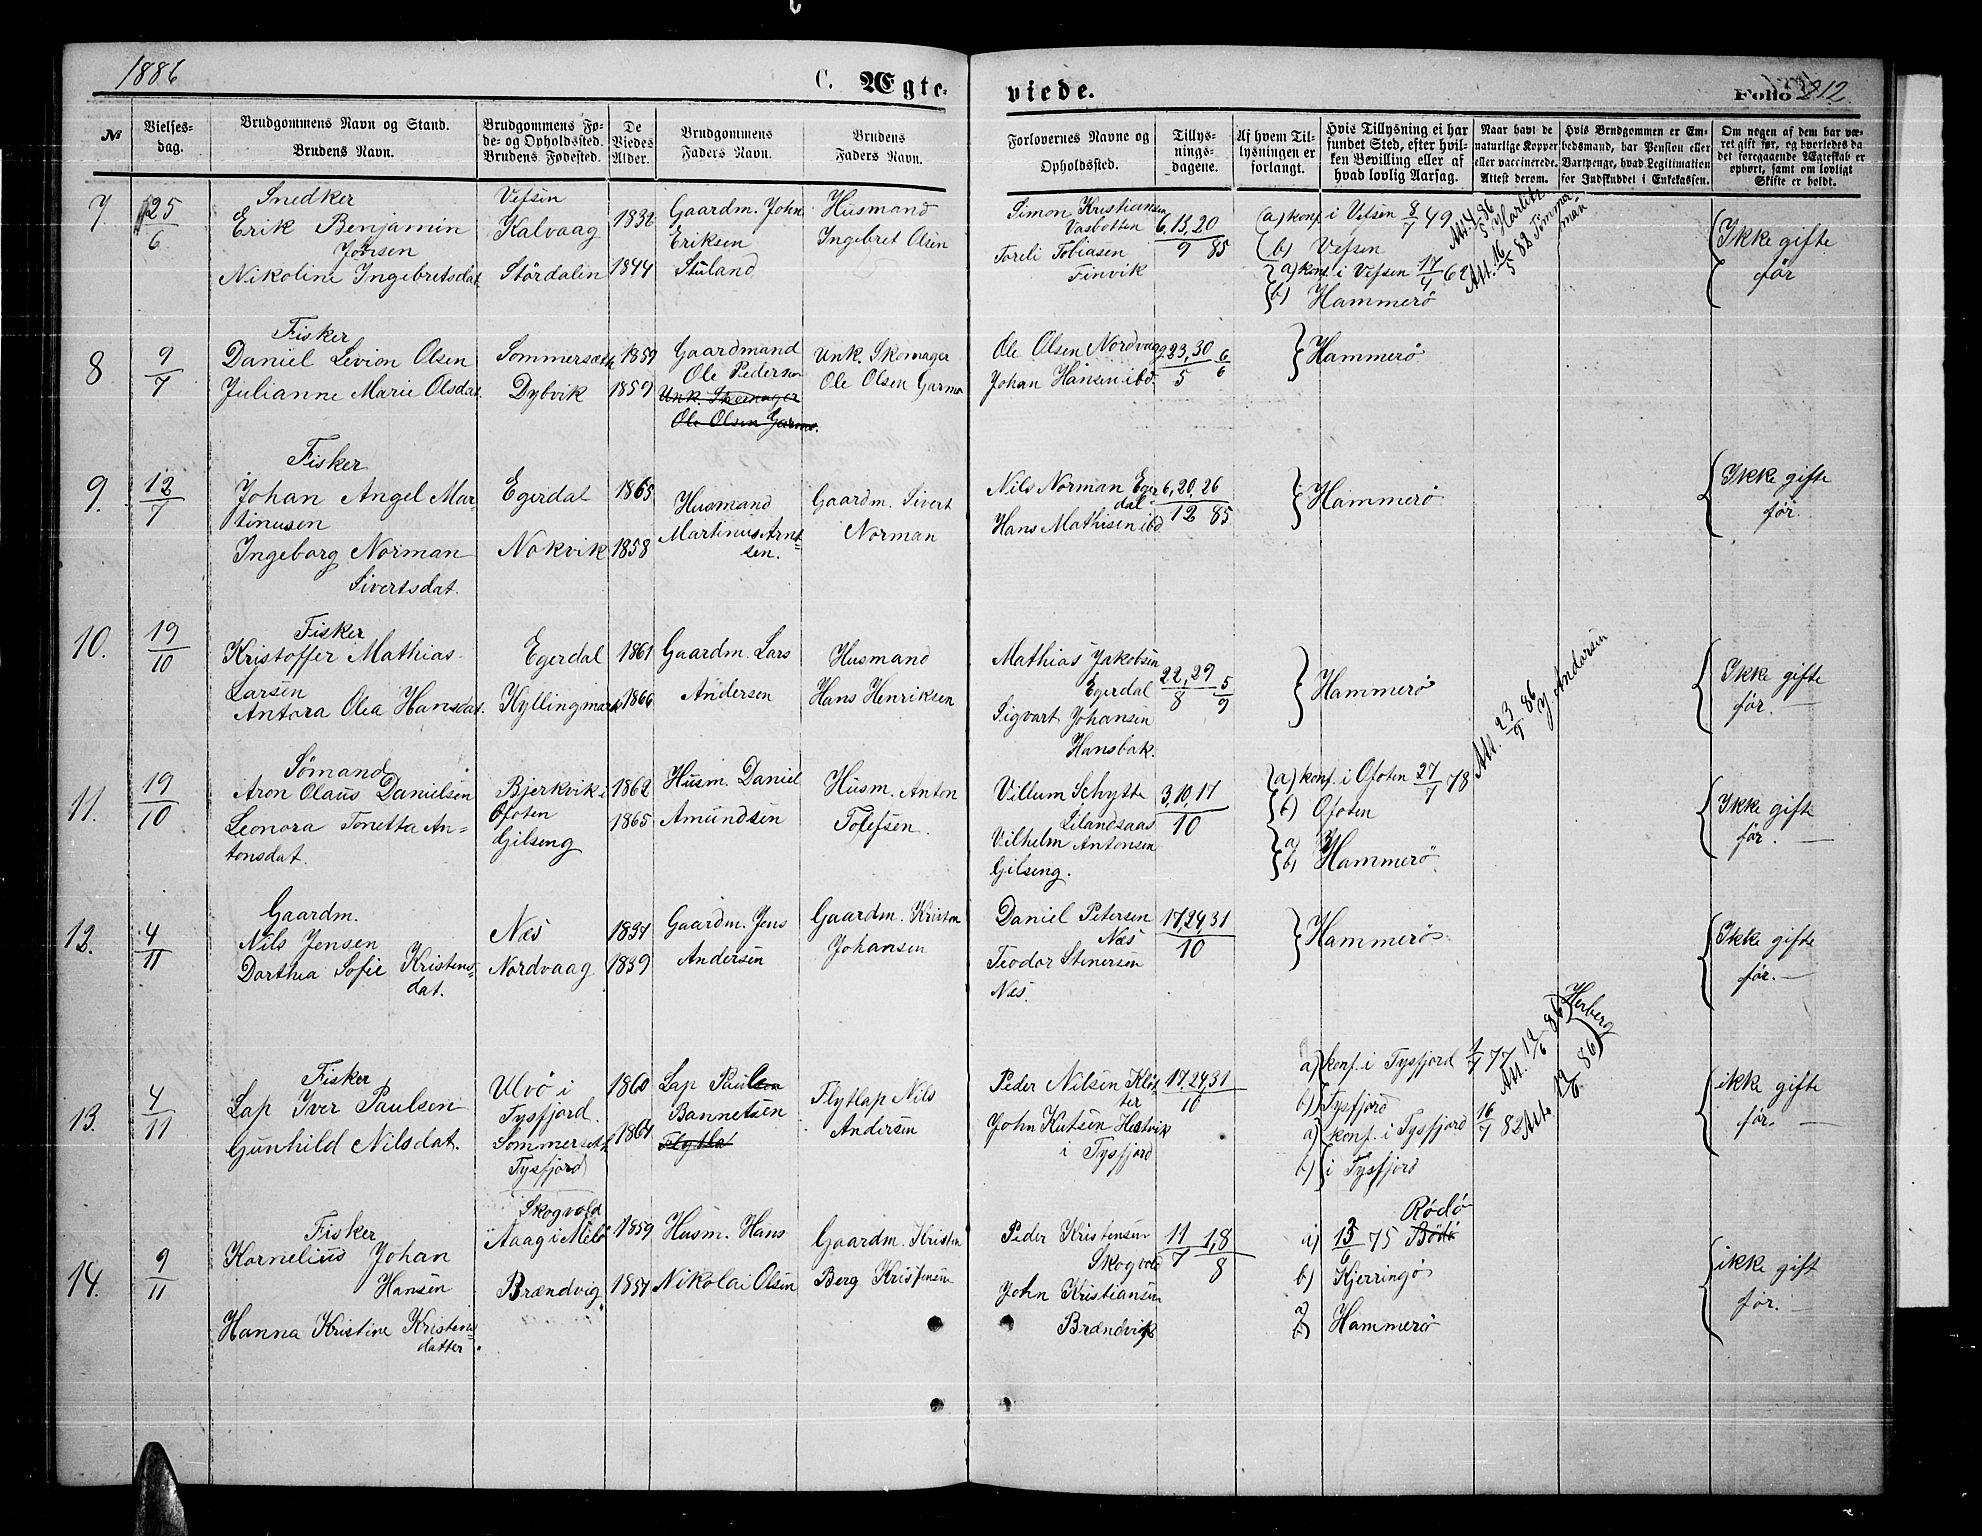 1886
C. Ægte-
viede.
Folio 212.
№
Vielses-
dag.
Brudgommens Navn og Stand.
Brudens Navn.
Brudgommens Fø-
de- og Opholdssted.
Brudens Fødested.
De
Viedes
Alder.
Brudgommens
Faders Navn.
Brudens
Faders Navn.
Forlovernes Navne og
Opholdssted.
Tillys-
nings-
dagene.
Af hvem Til-
lysningen er
forlangt.
Hvis Tillysning ei har
fundet Sted, efter hvil-
ken Bevilling eller af
hvad lovlig Aarsag.
Naar havt de
naturlige Kopper
eller vaccinerede.
Attest derom.
Hvis Brudgommen er Em-
bedsmand, har Pension eller
Vartpenge, hvad Legitimation
for Indskuddet i Enkekassen.
Om nogen af dem har væ-
ret gift før, og hvorledes da
det foregaaende Ægteskab er
ophørt, samt om lovligt
Skifte er holdt.
7.
25/6
Snedker
Erik Benjamin
Jonsen
Nikoline Ingebretsdat.
Vefsen
Kalvaag
Stördalen
1832
1844
Gaardm. John
Eriksen
Stuland
Husmand
Ingebret Olsen
Simon Kristiansen
Vasbotten
Toreli Tobiasen
Finvik
6, 13, 20
9 85
(a) konf. i Vefsen 8/7 49
(b) Vefsen
a) konf. i Vefsen 17/4 62
(b) Hammerö
Att. 16/5 82 Tömmer
man
Ikke gifte
før
8
9/7
Fisker
Daniel Levion Olsen
Julianne Marie Olsdat.
Sommersæth
Dybvik
1859
1859
Gaardmand
Ole Pedersen
Unk. Skomager
Ole Olsen Garmo.
Unk. Skomager
Ole Olsen Garmo
Ole Olsen Nordvaag
Johan Hansen ibd.
23, 30/5 6/6
Hammerö
9.
12/7
Fisker
Johan Angel Mar-
tinusen
Ingeborg Norman
Sivertsdat.
Egerdal
Nokvik
1865
1858
Husmand
Martinus Arnt-
sen.
Gaardm. Sivert
Norman
Nils Norman Eger
dal
Hans Mathisen ibd
6, 20, 26
12 85
Hammerö
Ikke gifte
før.
10.
19/10
Fisker
Kristoffer Mathias
Larsen
Antora Olea Hansdat.
Egerdal
Kyllingmark
1861
1866
Gaardm. Lars
Andersen
Husmand
Hans Henriksen
Mathias Jakobsen
Egerdal
Sigvart Johansen
Hansbak.
22, 29/8 5/9
Hammerö
Ikke gifte
før.
11.
19/10
Sømand
Aron Olaus Danielsen
Leonora Tonetta An-
tonsdat.
Bjerkvik i
Ofoten
Gilseng
1862
1865
Husm. Daniel
Amundsen
Husm. Anton
Tolefsen.
Villum Schytte
Lilandsaas
Vilhelm Antonsen
Gilseng.
3, 10, 17
10
a) konf. i Ofoten 27/7 78
b) Ofoten
a)
b) Hammerö
Att. 23/9 86
J. Andersen
Ikke gifte
før.
12.
4/11
Gaardm.
Nils Jensen
Dorthea Sofie Kristens-
dat.
Næs
Nordvaag
1837
1839
Gaardm. Jens
Andersen
Gaardm. Kristen
Johansen
Daniel Petersen
Næs
Teodor Stenersen
Næs.
17, 24, 31
10
Hammerö
Ikke gifte
før.
13.
4/11
Fisker
Lap Iver Paulsen
Gunhild Nilsdat.
Ulvö i
Tysfjord.
Sommerseth
Tysfjord
1860
1864
Lap Paul
Bannetsen
Flytlap Nils
Andersen
Peder Nilsen Klöf
ter
John Knutsen Hestvik
i Tysfjord
17, 24, 31
10
a) konf. i Tysfjord 1/7 77
b) Tysfjord
a) konf. i Tysfjord 16/7 82
b) i Tysfjord
Att. 12/6 86
Att. 12/6 86
Herberg
ikke gifte
før.
14.
9/11
Fisker
Kornelius Johan
Hansen
Hanna Kristine Kristens-
datter.
Skogvold
Aag i Melö
Brændvig
1859
1857
Husm. Hans
Nikolai Olsen
Gaardm. Kristen
Berg Kristensen
Peder Kristensen
Skogvold
John Kristiansen
Brændvik
11/7 1,8/8
a) 13/6 75 Bödö
Rødø
b) Kjerringö
a)
b) Hammerö
ikke gift
før.